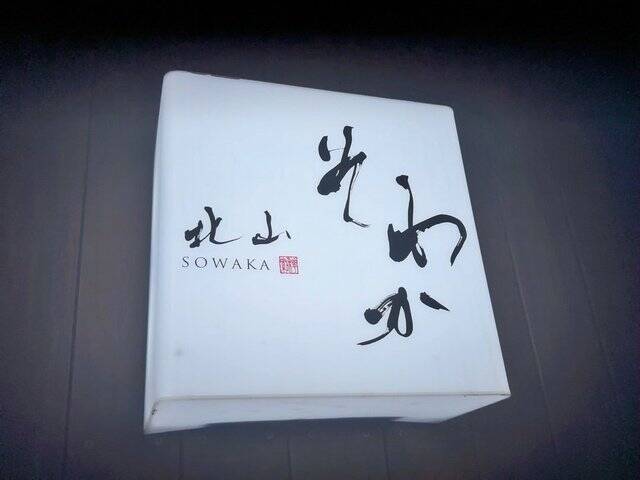 そわか
北山
SOWAKA